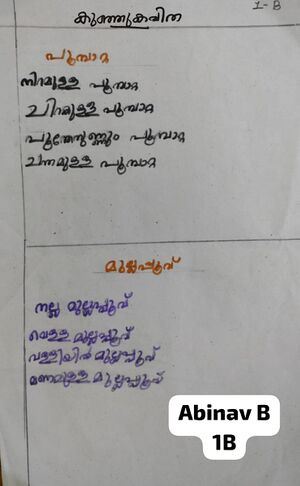 1-B
കുഞ്ഞുകവിത
പൂമ്പാറ്റ
നിറമുള്ള പൂമ്പാറ്റ
ചിറകുള്ള പൂമ്പാറ്റ
പൂന്തേനുണ്ണും പൂമ്പാറ്റ
ചന്തമുള്ള പൂമ്പാറ്റ
മുല്ലപ്പൂവ്
നല്ല മുല്ലപ്പൂവ്
വെള്ള മുല്ലപ്പൂവ്
വള്ളിയിൽ മുല്ലപ്പൂവ്
മണമുള്ള മുല്ലപ്പൂവ്
Abinav B
1B